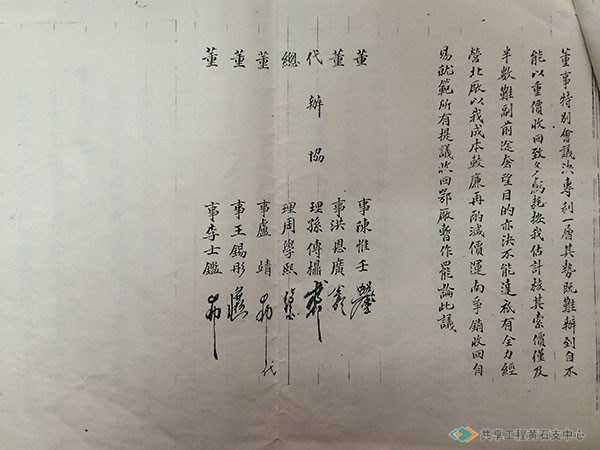 董事特別會議決專利一層其勢既難辦到自不
能以重價收回致多虧耗按我估計核其索價僅及
半數難副前途奢望目的亦決不能達祇有全力經
營北廠以我成本較廉再酌減價運尚爭銷收回自
易就範所有提議收回鄂廠暫作罷論此議
董事陳惟壬
董事洪恩廣
代辦協理孫傳
總理周學熙
董事盧靖 代
董事王錫彤
董事李士鑑
共享工程黄石支中心